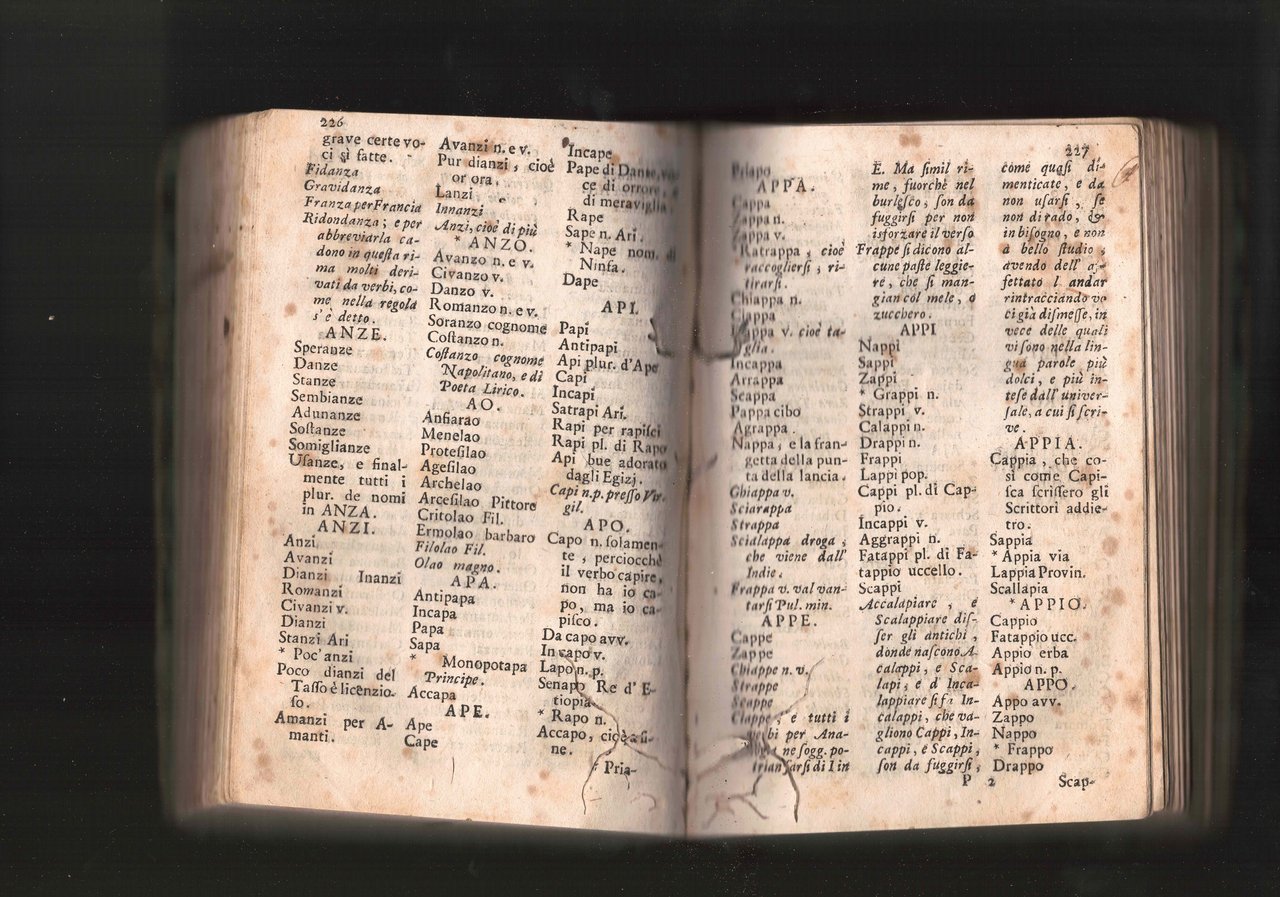 226
grave certe vo-
ci sì fatte.
Fidanza
Gravidanza
Franza per Francia
Ridondanza ; e per
abbreviarla ca-
dono in questa ri-
ma molti deri-
vati da verbi, co-
me nella regola
s'è detto.
ANZE.
Speranze
Danze
Stanze
Sembianze
Adunanze
Sostanze
Somiglianze
Usanze, e final-
mente tutti i
plur. de nomi
in ANZA.
ANZI.
Anzi
Avanzi
Dianzi Inanzi
Romanzi
Civanzi v.
Dianzi
Stanzi Ari
* Poc'anzi
Poco dianzi del
Tasso è licenzio-
so.
Amanzi per A-
manti.
Avanzi n. e v.
Pur dianzi, cioè
or ora.
Lanzi
Innanzi
Anzi, cioè di più
* ANZO.
Avanzo n. e v.
Civanzo v.
Danzo v.
Romanzo n. e v.
Soranzo cognome
Costanzo n.
Costanzo cognome
Napolitano, e di
Poeta Lirico.
AO.
Anfiarao
Menelao
Protesilao
Agesilao
Archelao
Arcesilao Pittore
Critolao Fil.
Ermolao barbaro
Filolao Fil.
Olao magno.
APA.
Antipapa
Incapa
Papa
Sapa
* Monopotapa
Principe.
Accapa
APE.
Ape
Cape
Incape
Pape di Dante, vo
ce di orrore, e
di meraviglia
Rape
Sape n. Ari.
* Nape nom. di
Ninfa.
Dape
API.
Papi
Antipapi
Api plur. d'Ape
Capi
Incapi
Satrapi Ari.
Rapi per rapisci
Rapi pl. di Rapo
Api bue adorato
dagli Egizj.
Capi n.p. presso Vir-
gil.
APO.
Capo n. solamen-
te, perciocchè
il verbo capire,
non ha io ca-
po, ma io ca-
pisco.
Da capo avv.
In capo v.
Lapo n. p.
Senapo Re d'E-
tiopia
* Rapo n.
Accapo, cioè a fi-
ne.
Pria-
227
Priapo
APPA.
Cappa
Zappa n.
Zappa v.
Ratrappa, cioè
raccogliersi, ri-
tirarsi.
Chiappa n.
Clappa
v. cioè ta-
glia.
Incappa
Arrappa
Scappa
Pappa cibo
Agrappa.
Nappa, e la fran-
getta della pun-
ta della lancia.
Ghiappa v.
Sciarappa
Strappa
Scialappa droga,
che viene dall'
Indie.
Frappa v. val van-
tarsi Pul. min.
APPE.
Cappe
Zappe
Chiappe n. v.
Strappe
Scappe
Clappe, e tutti i
verbi per Ana-
ne sogg. po-
trian farsi di I in
E. Ma simil ri-
me, fuorchè nel
burlesco, son da
fuggirsi per non
isforzare il verso
Frappe si dicono al-
cune paste leggie-
re, che si man-
gian col mele, o
zucchero.
APPI
Nappi
Sappi
Zappi
* Grappi n.
Strappi v.
Calappi n.
Drappi n.
Frappi
Lappi pop.
Cappi pl. di Cap-
pio.
Incappi v.
Aggrappi n.
Fatappi pl. di Fa-
tappio uccello.
Scappi
Accalapiare, e
Scalappiare dis-
ser gli antichi,
donde nascono A-
calappi, e Sca-
lapi; e d' Inca-
lappiare si fa In-
calappi, che va-
gliono Cappi, In-
cappi, e Scappi,
son da fuggirsi,
come quasi di-
menticate, e da
non usarsi, se
non di rado, &
in bisogno, e non
a bello studio;
avendo dell' af-
fettato l andar
rintracciando vo
ci già dismesse, in
vece delle quali
vi sono nella lin-
gua parole più
dolci, e più in-
tese dall' univer-
sale, a cui si scri-
ve.
APPIA.
Cappia, che co-
sì come Capi-
sca scrissero gli
Scrittori addie-
tro.
Sappia
* Appia via
Lappia Provin.
Scallapia
* APPIO.
Cappio
Fatappio ucc.
Appio erba
Appio n. p.
APPO.
Appo avv.
Zappo
Nappo
* Frappo
Drappo
P 2 Scap-